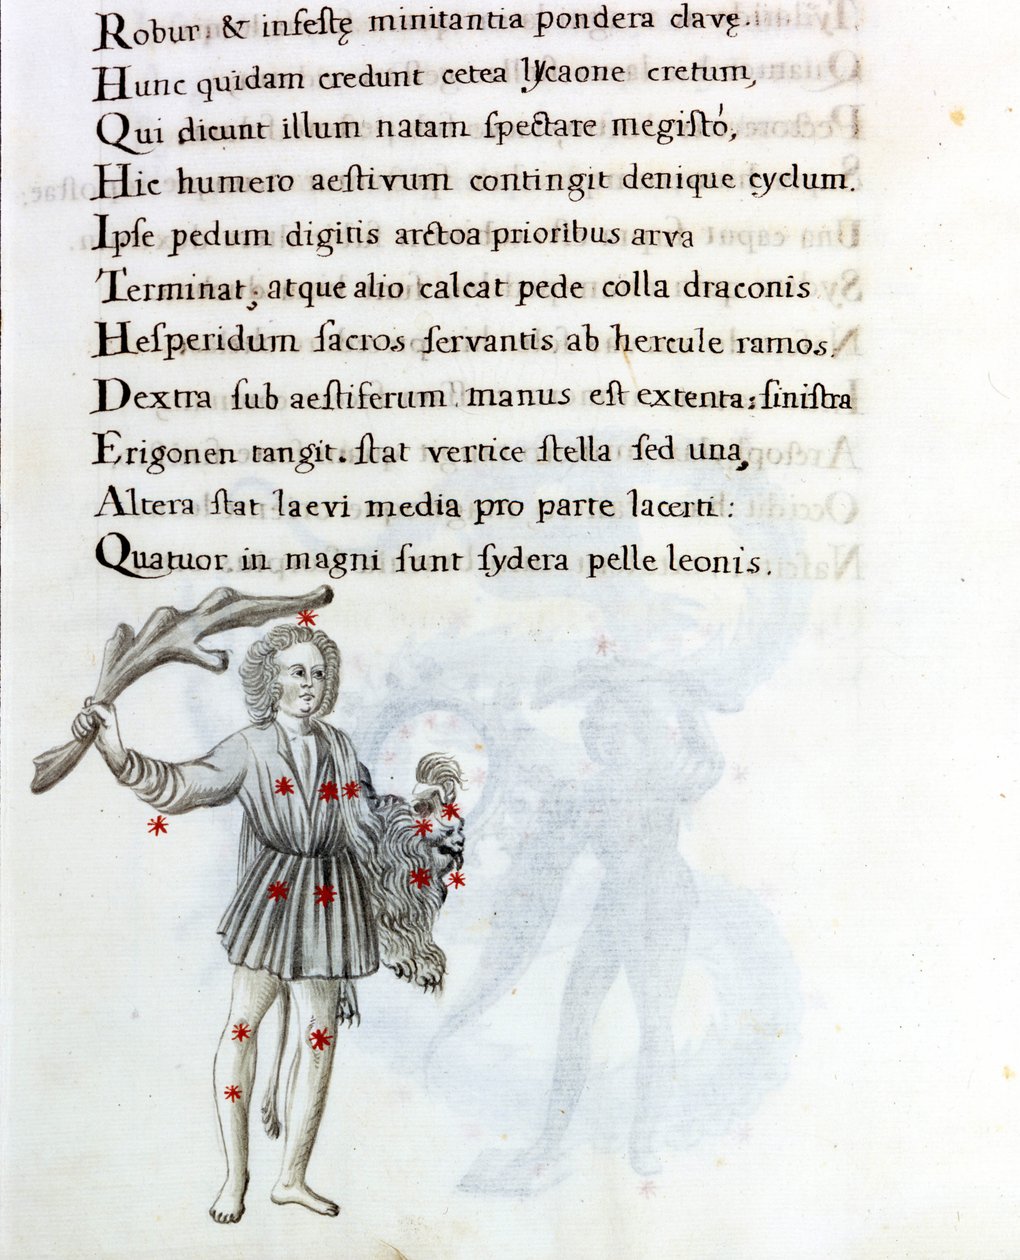 Robur. & infeſtę minitantia pondera clavę.
Hunc quidam credunt cetea lycaone cretum,
Qui dicunt illum natam ſpectare megiſtó,
Hic humero aeſtivum contingit denique cyclum.
Ipſe pedum digitis arctoa prioribus arva
Terminat; atque alio calcat pede colla draconis
Heſperidum ſacros ſervantis ab hercule ramos.
Dextra ſub aeſtiferum manus eſt extenta; ſiniſtra
Erigonen tangit. ſtat vertice ſtella ſed una,
Altera ſtat laevi media pro parte lacerti:
Quatuor in magni ſunt ſydera pelle leonis.